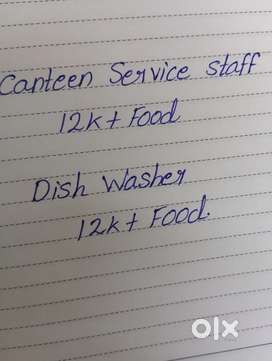 Canteen Service staff
12k+ Food
Dish Washer
12k+ Food.
olx